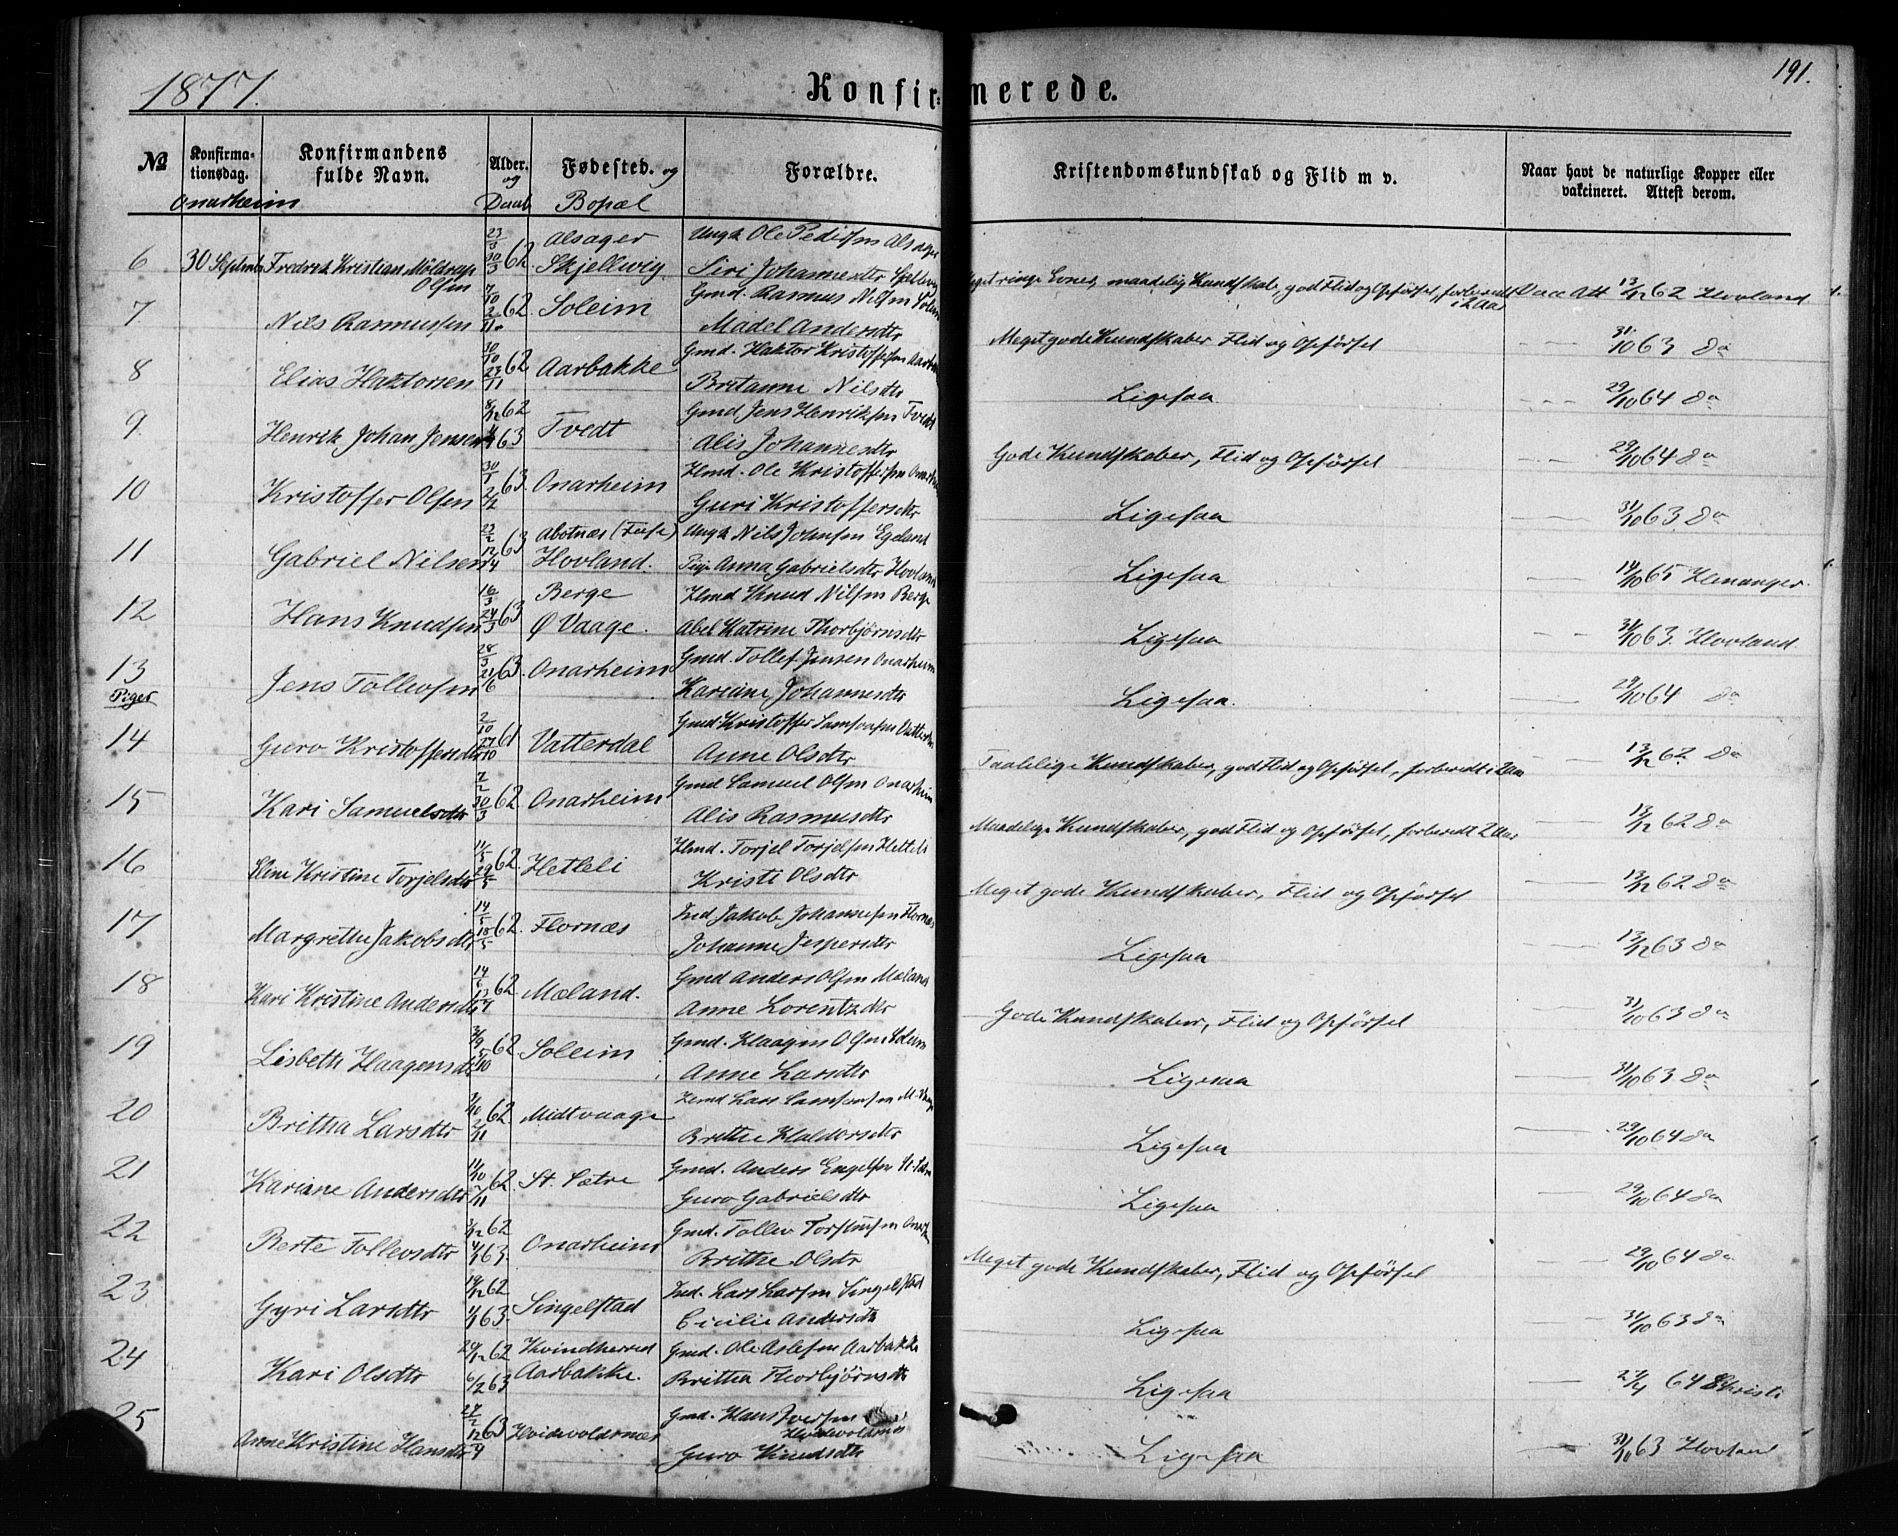 191.
1877. Konfirmerede.
№ Konfirmationsdag. Konfirmandens fulde Navn. Alder. og Daab Fødested. og Bopæl Forældre. Kristendomskundskab og Flid m v. Naar havt de naturlige Kopper eller vakcineret. Attest derom.
Onarheim
6 30 Septmbr Fredrik Kristian Möldrup Olsen 62 Alsager Skjellwig Ungk Ole Pedersen Alsager Siri Johannesdtr Meget ringe Evner, maadelig Kundskab, god Flid og Opførsel, forberedt i 2 Aar Vacc Att 13/12 62 Hovland
7 Nils Rasmussen 7/10 2/11 62 Soleim Gmd. Rasmus Nilsen Madel Andersdtr Meget gode Kundskaber Flid og Opførsel 31/10 63 do
8 Elias Haktorsen 30/10 23/11 62 Aarbakke Gmd. Haktor Kristoffersen Britanne Nilsdtr Ligesaa 29/10 64 do
9. Henrik Johan Jensen 8/12 62 63 Tvedt Gmd. Jens Henriksen Tvedt Alis Johannesdtr Gode Kundskaber, Flid og Opførsel 29/10 64 do
10 Kristoffer Olsen 30/1 2/2 63. Onarheim Hmd. Ole Kristoffersen Guri Kristoffersdtr Ligesaa 31/10 63 do
11 Gabriel Nilsen 22/2 12/4 63 Hovland. Ungk Nils Johnsen Egeland Pige Anna Gabrielsdtr Hovland Ligesaa 14/10 65
12 Hans Knudsen 16/3 24/3 63 Berge Ø Vaage. Hmd Knud Nilsen Berge Abel Katrine Thorbjørnsdtr Ligesaa 31/10 63. Hovland
13 Jens Tollevsen 28/3 21/6 63. Onarheim Gmd. Tollef Jensen Onarheim Karine Johannesdtr Ligesaa. 29/10 64 do
Piger
14 Guro Kristoffersdtr 2/10 27/10 61 Vatterdal Gmd. Kristoffer Samsonsen Anne Olsdtr Taalelige Kundskaber, god Flid og Opførsel, forberedt i 2 Aar 13/12 62 do
15 Kari Samuelsdtr 2/2 30/3 62. Onarheim Gmd Samuel Olsen Onarheim Alis Rasmusdtr Maadelige Kundskaber, god Flid og Opførsel, forberedt 2 Aar 13/12 62 do
16 Eline Kristine Torjelsdtr 14/5 29/5 62. Hetleli Hmd. Torjel Torjelsen Hetleli Kristi Olsdtr Meget gode Kundskaber, Flid og Opførsel 13/12 62 do
17 Margrethe Jakobsdtr 14/5 18/5 62. Flornæs Ind Jakob Johannesen Flornæs Johanne Jespersdtr Ligesaa 13/12 63 do
18 Kari Kristine Andersdtr 14/6 13/7 62. Mæland. Gmd Anders Olsen Mæland Anne Lorentzdtr Gode Kundskaber, Flid og Opførsel 31/10 63 do
19 Lisbeth Haagensdtr 62 Soleim Gmd. Haagen Olsen Soleim Anne Larsdtr Ligesaa 31/10 63 do
20 Britha Larsdtr 62 Midtvaage Hmd Lars Samsonsen Brithe Haldorsdtr Ligesaa 29/10 64 do
21 Kariane Andersdtr 62. St. Sætre Gmd. Anders Engelsen Guro Gabrielsdtr Ligesaa 29/10 64 do
22 Berte Tollevsdtr 62 63. Onarheim Gmd. Tollev Torstensen Brithe Olsdtr Meget gode Kundskaber, Flid og Opførsel 29/10 64 do
23. Gyri Larsdtr 62 63. Singelstad Ind. Lars Larsen Singelstad Cicilie Andersdtr Ligesaa 31/10 63 do
24 Kari Olsdtr 29/12 62 6/2 63 Kvindherred Aarbakke. Gmd. Ole Aslesen Aarbakke Britha Thorbjørnsdtr Ligesaa 27/4 64
25 Anne Kristine Hansdtr 27/2 12/4 63 Hvidevoldsnæs Gmd. Hans Iversen Guro Knudsdtr Ligesaa 31/10 63 Hovland